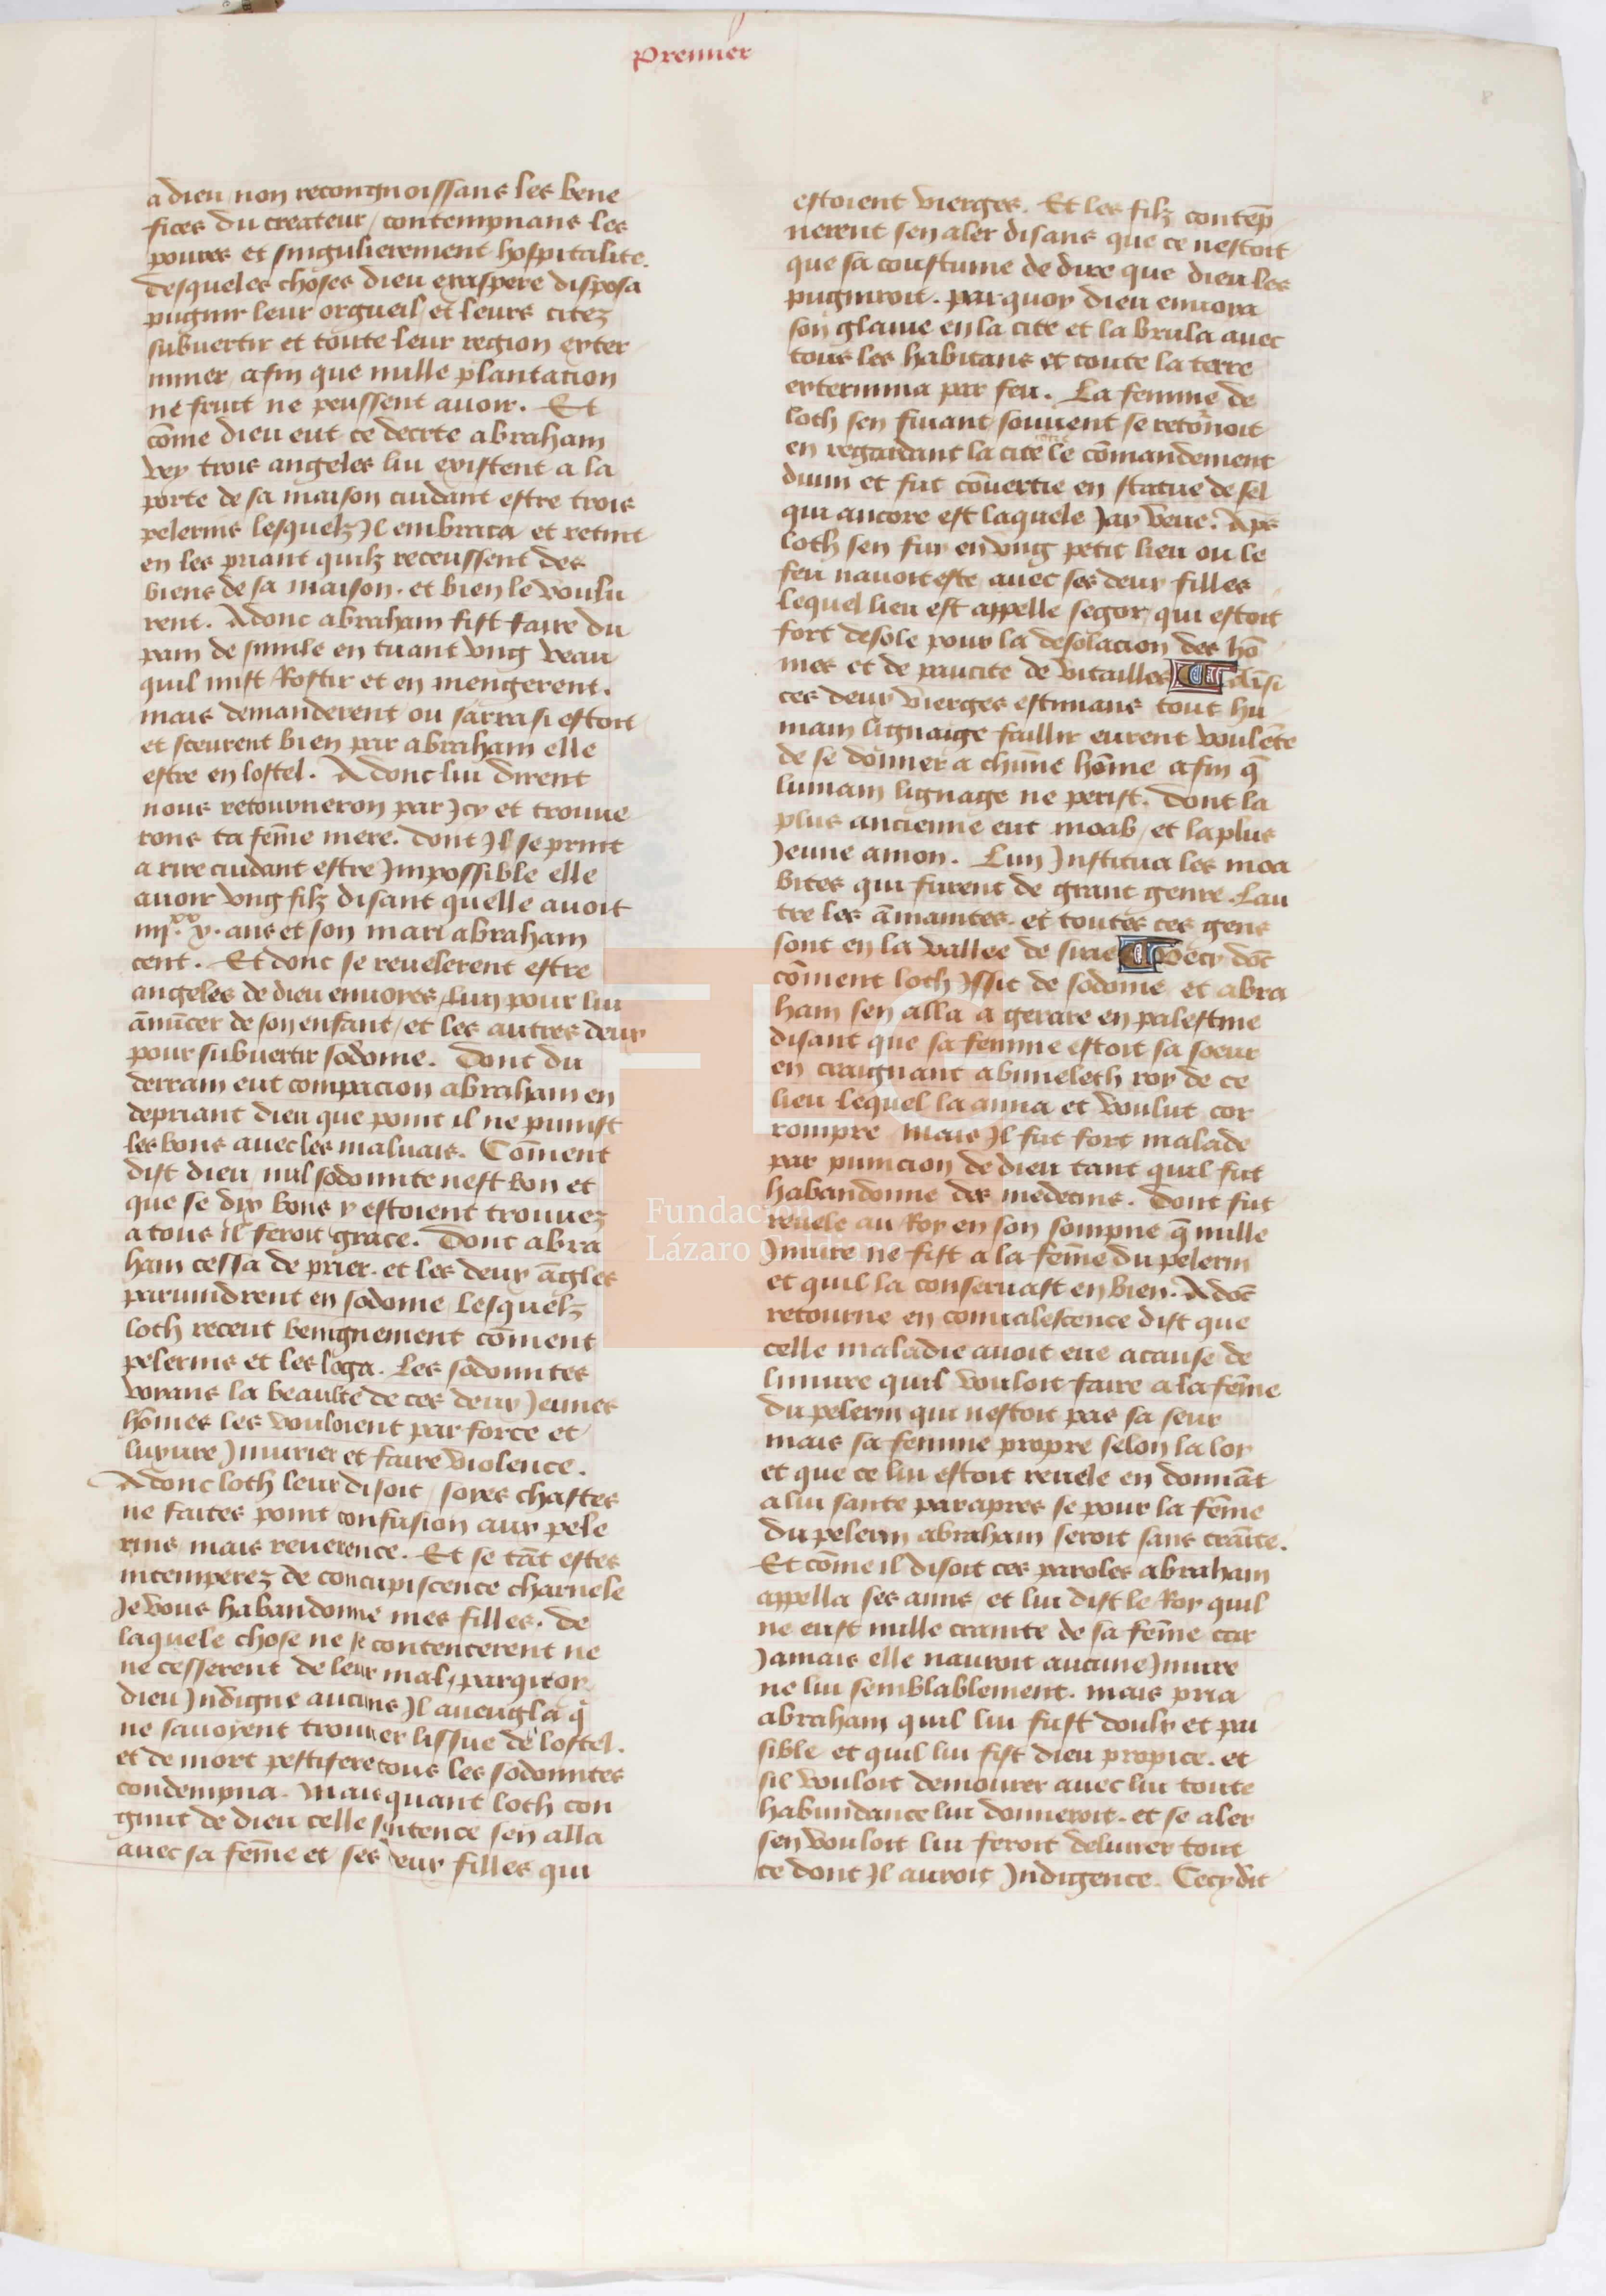 premier
8
a dieu / non recongnoissans les bene
fices du createur / contempnans les
poures et singulierement hospitalite.
desqueles choses dieu exaspere disposa
pugnir leur orgueil / et leurs citez
subuertir et toute leur region exter
miner / afin que nulle plantacion
ne fruit ne peussent auoir. Et
cōme dieu eut ce decrete abraham
vey trois angeles lui existent a la
porte de sa maison cuidant estre trois
pelerins lesquelz Il embraca et retint
en les priant quilz receussent des
biens de sa maison. et bien le voulu
rent. Adonc abraham fist faire du
pain de simile en tuant vng veau
quil mist Rostir et en mengerent.
mais demanderent ou sarra si estoit
et sceurent bien par abraham elle
estre en lostel. Adonc lui dirent
nous retourneron par Icy et trouue
rons ta fēme mere. dont Il se print
a rire cuidant estre Impossible elle
auoir vng filz disant quelle auoit
iiij.xx x. ans et son mari abraham
cent. Et donc se reuelerent estre
angeles de dieu enuoyes / lun pour lui
ānūcer de son enfant / et les autres deux
pour subuertir sodome. Dont du
derrain eut compacion abraham en
depriant dieu que point il ne punist
les bons auec les maluais. Cōment
dist dieu / nul sodomite nest bon et
que se dix bons y estoient trouuez
a tous il feroit grace. Donc abra
ham cessa de prier. et les deux āgles
paruindrent en sodome / lesquelz
loth receut benignement cōment
pelerins et les loga. Les sodomites
voians la beaulte de ces deux Jeunes
hōmes les vouloient par force et
luxure Iniurier et faire violence.
Adonc loth leur disoit / soyes chastes
ne faites point confusion aux pele
rins / mais reuerence. Et se tāt estes
intemperez de concupiscence charnele
Je vous habandonne mes filles. de
laquele chose ne se contencerent ne
ne cesserent de leur mal / parquoy
dieu Indigne aucuns Il aueugla q̄
ne sauoyent trouuer lissue de lostel.
et de mort pestifere tous les sodomites
condempna. Mais quant loth con
gnut de dieu celle sentence sen alla
auec sa fēme et ses deux filles qui
estoient vierges. Et les filz contēp
nerent sen aler disans que ce nestoit
que sa coustume de dire que dieu les
pugniroit. parquoy dieu enuoya
son glaiue en la cite et la brula auec
tous les habitans et toute la terre
extermina par feu. La femme de
loth sen fuiant souuent se retōnoit
en regardant la cite contre le cōmandement
diuin et fut cōuertie en statue de sel
qui ancore est laquele Jay veue. Apꝰs
loth sen fuy en vng petit lieu ou le
feu nauoit este auec ses deux filles
lequel lieu est appelle segor / qui estoit
fort desole pour la desolacion des hō
mes et de paucite de vitailles Ainsi
ces deux vierges estimans tout hu
main lignaige faillir eurent voulēte
de se donner a chūne hōme afin q̄
lumain lignage ne perist. dont la
plus ancienne eut moab / et la plus
Jeune amon. Lun Institua les moa
bites qui furent de grant genre. Lau
tre les āmanites. et toutes ces gens
sont en la vallee de sirie Vecy dōt
cōment loth Issit de sodome / et abra
ham sen alla a gerare en palestine
disant que sa femme estoit sa soeur
en craignant abimeleth roy de ce
lieu lequel la ama et voulut cor
rompre Mais Il fut fort malade
par punicion de dieu tant quil fut
habandonne des medecins. Dont fut
reuele au Roy en son sompne q̄ nulle
Iniure ne fist a la fēme du pelerin
et quil la conseruast en bien. Adōt
retourne en conualescence dist que
celle maladie auoit eue acause de
liniure quil vouloit faire a la fēme
du pelerin qui nestoit pas sa seur
mais sa femme propre selon la loy
et que ce lui estoit reuele en donnāt
a lui sante par apres se pour la fēme
du pelerin abraham seroit sans crāite.
Et cōme il disoit ces paroles abraham
appella ses amis / et lui dist le Roy quil
ne eust nulle crainte de sa fēme car
Jamais elle nauroit aucune Iniure
ne lui semblablement. mais pria
abraham quil lui fust doulx et pai
sible et quil lui fist dieu propice. et
sil vouloit demourer auec lui toute
habundance lui donneroit. et se aler
sen vouloit lui feroit deliurer tout
ce dont Il auroit Indigence. Cecy dit
FLG
Fundación
Lázaro Galdiano